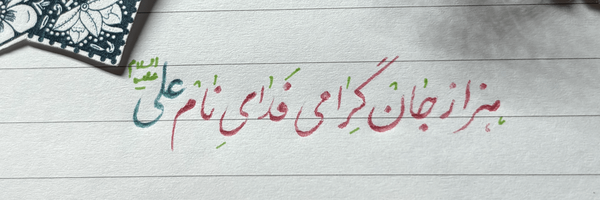 هزار جان گِرامی فَدایِ نام علی علیه السلام